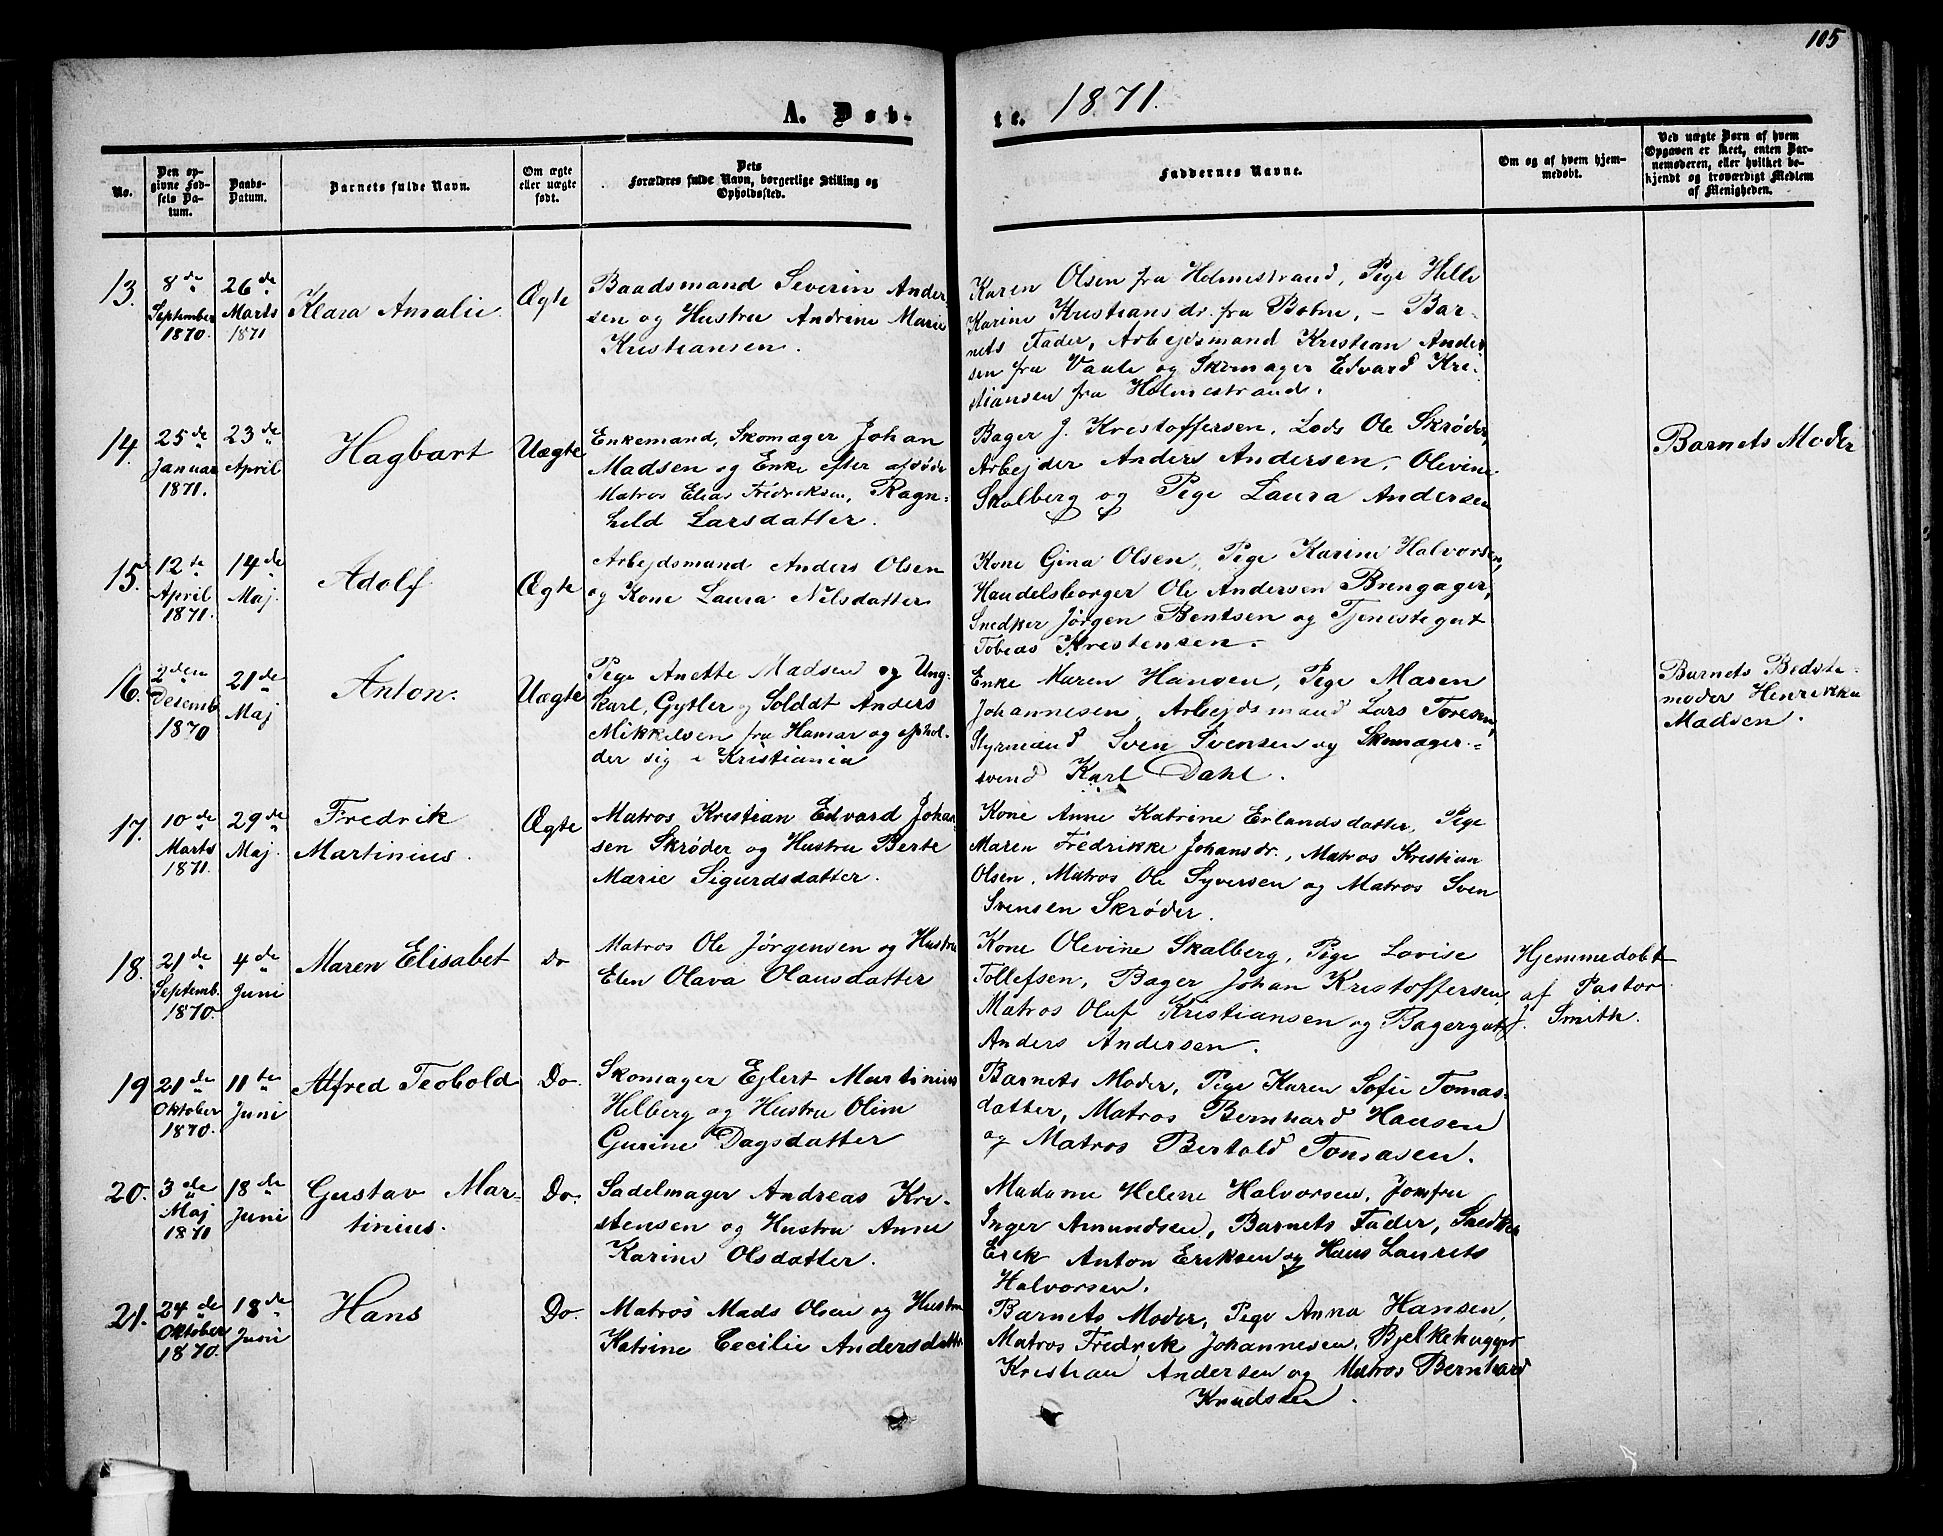 105
A. Døb-
te. 1871.
No.
Den op-
givne Fød-
sels Da-
tum.
Daabs-
Datum.
Barnets fulde Navn.
Om ægte
eller uægte
født.
Dets
Forældres fulde Navn, borgerlige Stilling og
Opholdssted.
Faddernes Navne.
Om og af hvem hjem-
medøbt.
Ved uægte Børn af hvem
Opgaven er skeet, enten Bar-
nemoderen, eller hvilket be-
kjendt og troværdigt Medlem
af Menigheden.
13.
8de
September
1870.
26de
Marts
1871
Klara Amalie
Ægte
Baadsmand Severin Ander
sen og Hustru Andrine Marie
Kristiansen.
Karen Olsen fra Holmestrand, Pige Helle
Karine Kristiansdr. fra Botne, - Bar-
nets Fader, Arbejdsmand Kristian Ander
sen fra Vaale og Skomager Edvard Kri-
stiansen fra Holmestrand.
14.
25de
Januar
1871.
23de
April
Hagbart
Uægte
Enkemand, Skomager Johan
Madsen og Enke efter afdøde
Matros Elias Fredriksen, Ragn-
hild Larsdatter.
Bager J. Kristoffersen, Lods Ole Skrøder,
Arbejder Anders Andersen, Olevine
Skalberg og Pige Laura Andersen
Barnets Moder
15.
12te
April
1871.
14de
Maj.
Adolf
Ægte
Arbejdsmand Anders Olsen
og Kone Laura Nilsdatter
Kone Gina Olsen, Pige Karine Halvorsen,
Handelsborger Ole Andersen Brengager,
Snedker Jørgen Bentsen og Tjenestegut
Tobias Kristensen.
16.
2den
Desemb.
1870
21de
Maj
Anton.
Uægte
Pige Anette Madsen og Ung-
karl, Gytler og Soldat Anders
Mikkelsen fra Hamar og ophol-
der sig i Kristiania
Enke Maren Hansen, Pige Maren
Johannesen, Arbejdsmand Lars Toresen,
Styrmand Sven Svensen og Skomager-
svend Karl Dahl.
Barnets Bedste-
moder Henrikka
Madsen.
17.
10de
Marts
1871.
29de
Maj.
Fredrik
Martinius.
Ægte
Matros Kristian Edvard Johan-
sen Skrøder og Hustru Berte
Marie Sigurdsdatter.
Kone Anne Katrine Erlandsdatter, Pige
Maren Fredrikke Johansdr., Matros Kristian
Olsen, Matros Ole Syversen og Matros Sven
Svensen Skrøder.
18.
21de
Septemb.
1870.
4de
Juni
Maren Elisabet
do
Matros Ole Jørgensen og Hustru
Elen Olava Olausdatter
Kone Olevine Skalberg, Pige Lovise
Tollefsen, Bager Johan Kristoffersen,
Matros Oluf Kristiansen og Bagergut
Anders Andersen.
Hjemmedøbt
af Pastor
J. Smith.
19
21de
Oktober
1870.
11te
Juni
Alfred Teobold
Do.
Skomager Ejlert Martinius
Hilberg og Hustru Olim
Gurine Dagsdatter
Barnets Moder, Pige Karen Sofie Tomas-
datter, Matros Bernhard Hansen
og Matros Bertold Tomasen.
20.
3de
Maj
1871
18de
Juni
Gustav Mar-
tinius.
Do.
Sadelmager Andreas Kri-
stensen og Hustru Anne
Karine Olsdatter.
Madame Helene Halvorsen, Jomfru
Inger Amundsen, Barnets Fader, Snedker
Erik Anton Eriksen og Hans Laurits
Halvorsen.
21.
24de
Oktober
1870.
18de
Juni
Hans
Do.
Matros Mads Olsen og Hustru
Katrine Cecilie Andersdatter
Barnets Moder, Pige Anna Hansen,
Matros Fredrik Johannesen, Bjelkehugger
Kristian Andersen og Matros Bernhard
Knudsen.